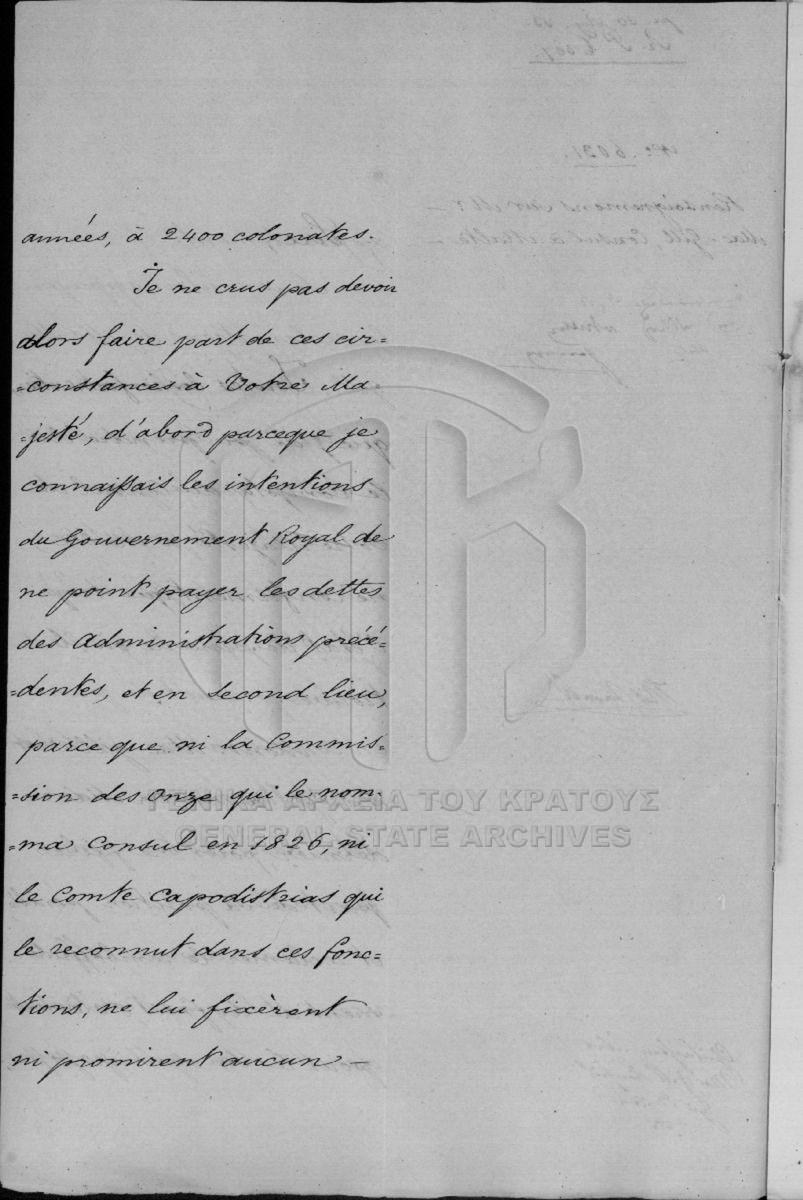 années, à 2400 colonates.
Je ne crus pas devoir
alors faire part de ces cir=
=constances à Votre Ma=
=jesté, d'abord parceque je
connaissais les intentions
du Gouvernement Royal de
ne point payer les dettes
des administrations précé=
=dentes, et en second lieu,
parce que ni la Commis=
=sion des onze qui le nom=
=ma Consul en 1826, ni
le Comte Capodistrias qui
le reconnut dans ces fonc=
tions, ne lui fixèrent
ni promirent aucun —
ΓΕΝΙΚΑ ΑΡΧΕΙΑ ΤΟΥ ΚΡΑΤΟΥΣ
GENERAL STATE ARCHIVES